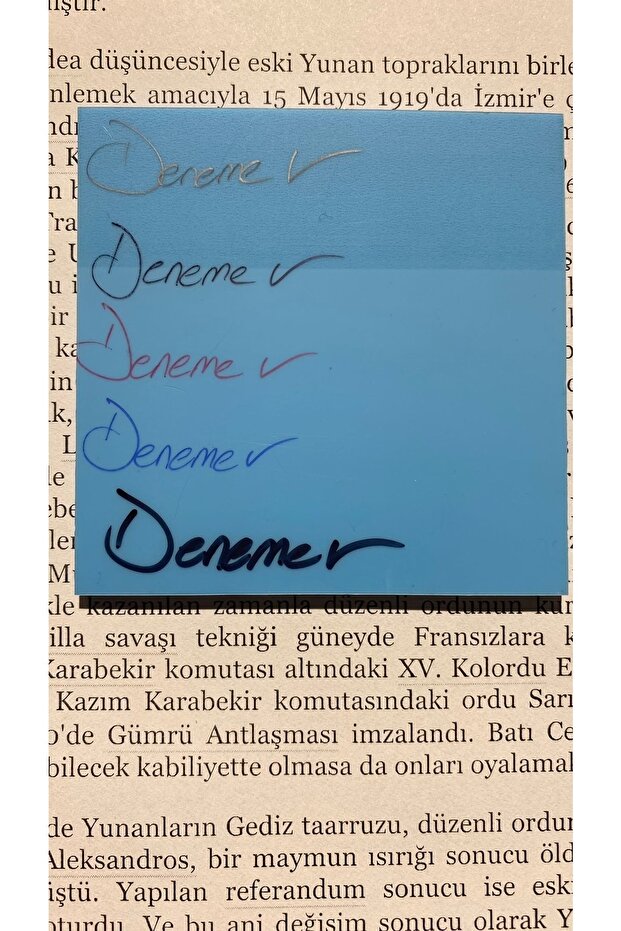 dea düşüncesiyle eski Yunan topraklarını
nlemek amacıyla 15 Mayıs 1919'da İzmir'e
Deneme
Deneme
Deneme
Deneme
Deneme
kle kazanılan zamanla düzenli ordunun kur
illa savaşı tekniği güneyde Fransızlara k
Karabekir komutası altındaki XV. Kolordu E
Kazım Karabekir komutasındaki ordu Sarı
o'de Gümrü Antlaşması imzalandı. Batı Ce
bilecek kabiliyette olmasa da onları oyalamal
de Yunanların Gediz taarruzu, düzenli ordu
Aleksandros, bir maymun ısırığı sonucu öld
üştü. Yapılan referandum sonucu ise eski
oturdu. Ve bu ani değişim sonucu olarak Y